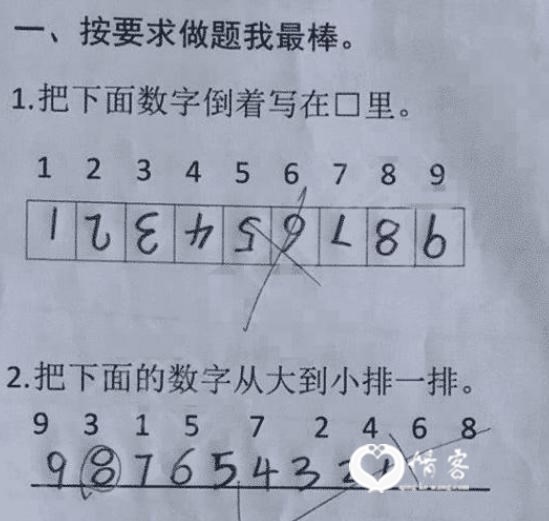 一、按要求做题我最棒。
1.把下面数字倒着写在□里。
1 2 3 4 5 6 7 8 9
1 2 3 4 5 6 7 8 9
2.把下面的数字从大到小排一排。
9 3 1 5 7 2 4 6 8
9 8 7 6 5 4 3 2